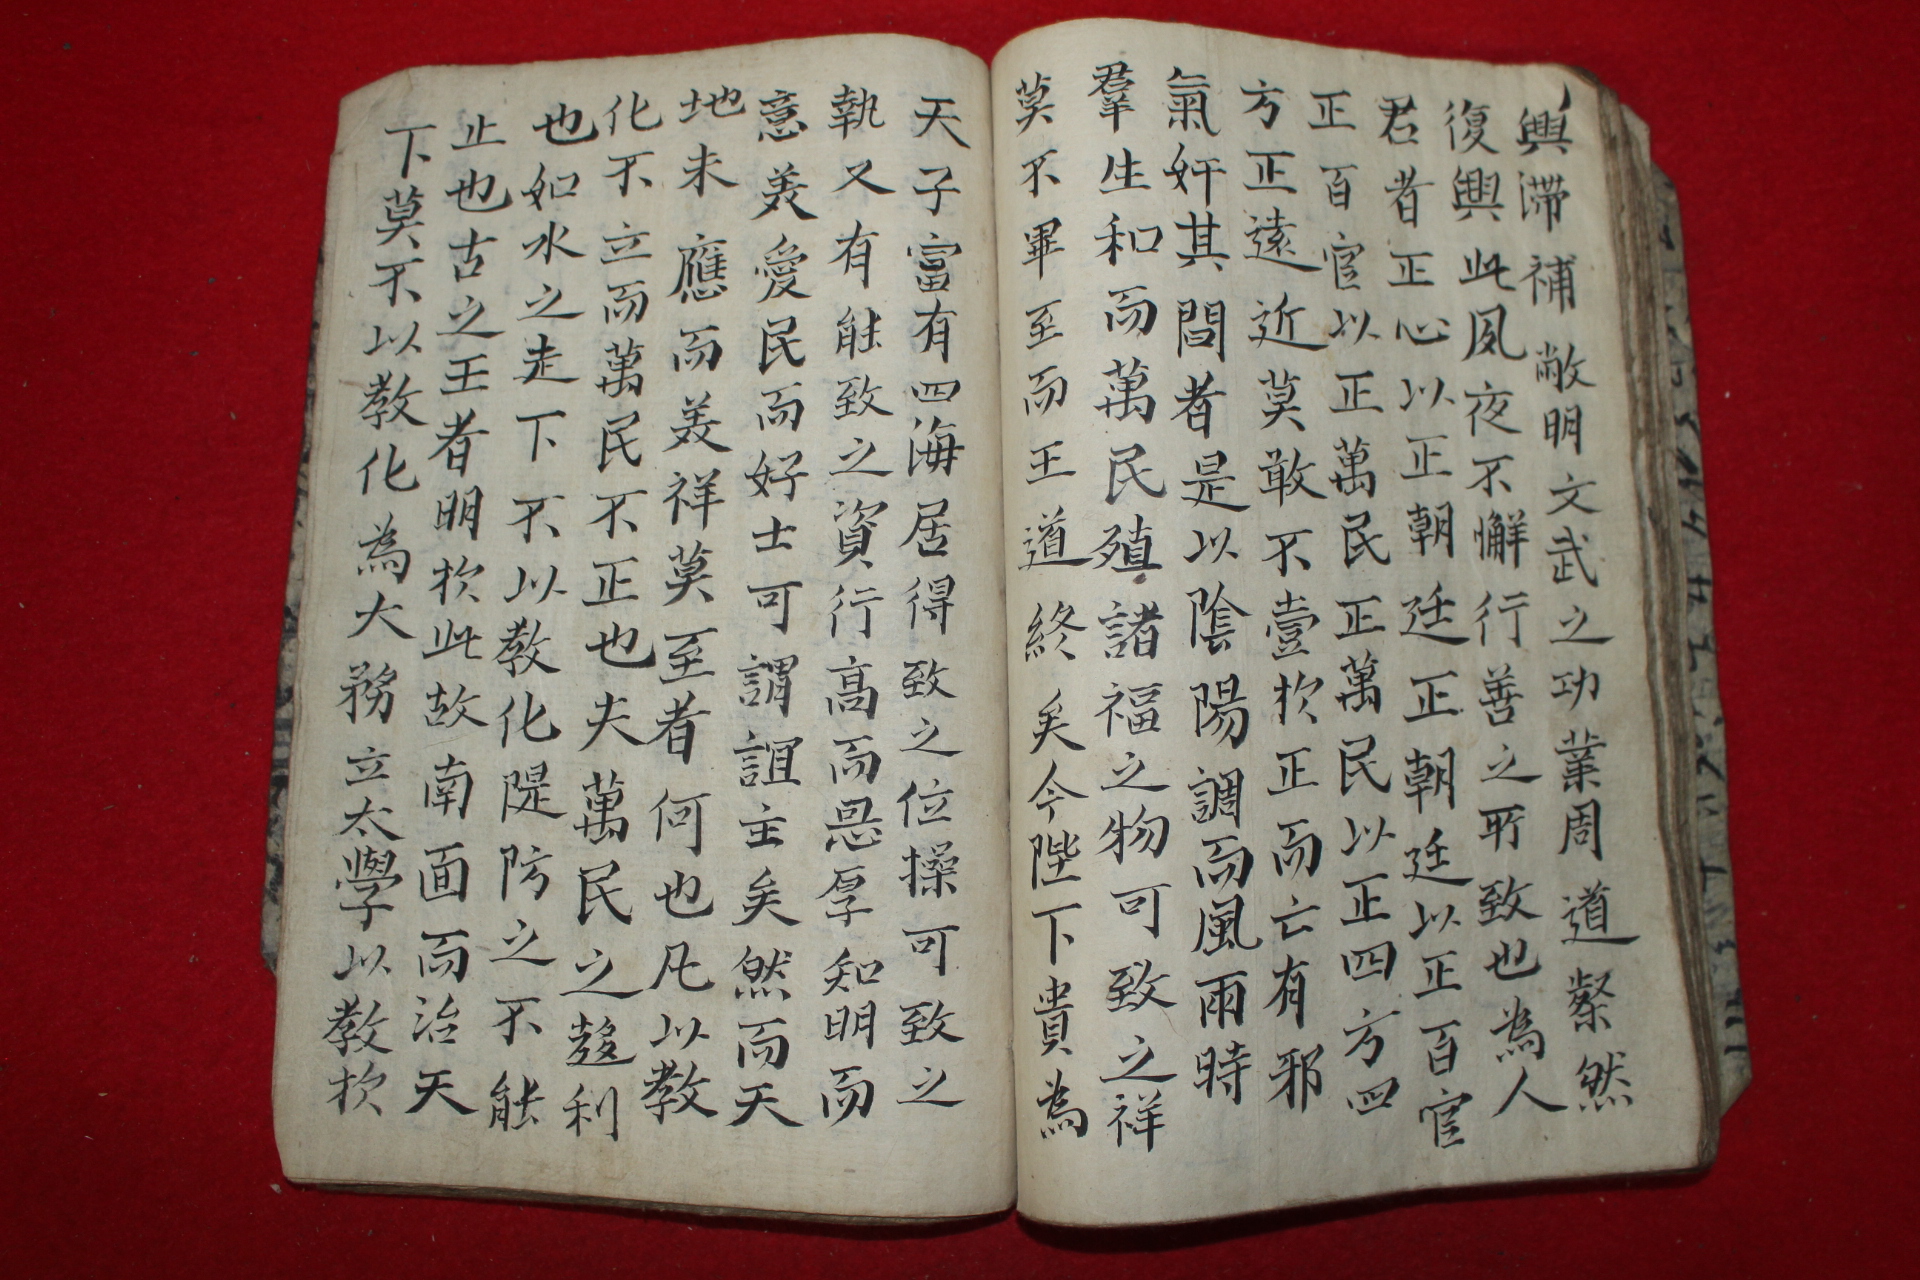 興滯補敝明文武之功業周道粲然
復興此夙夜不懈行善之所致也為人
君者正心以正朝廷正朝廷以正百官
正百官以正萬民正萬民以正四方四
方正遠近莫敢不壹於正而亡有邪
氣奸其間者是以陰陽調而風雨時
羣生和而萬民殖諸福之物可致之祥
莫不畢至而王道終矣今陛下貴為
天子富有四海居得致之位操可致之
執又有能致之資行高而恩厚知明而
意美愛民而好士可謂誼主矣然而天
地未應而美祥莫至者何也凡以教
化不立而萬民不正也夫萬民之趍利
也如水之走下不以教化隄防之不能
止也古之王者明於此故南面而治天
下莫不以教化為大務立太學以教於